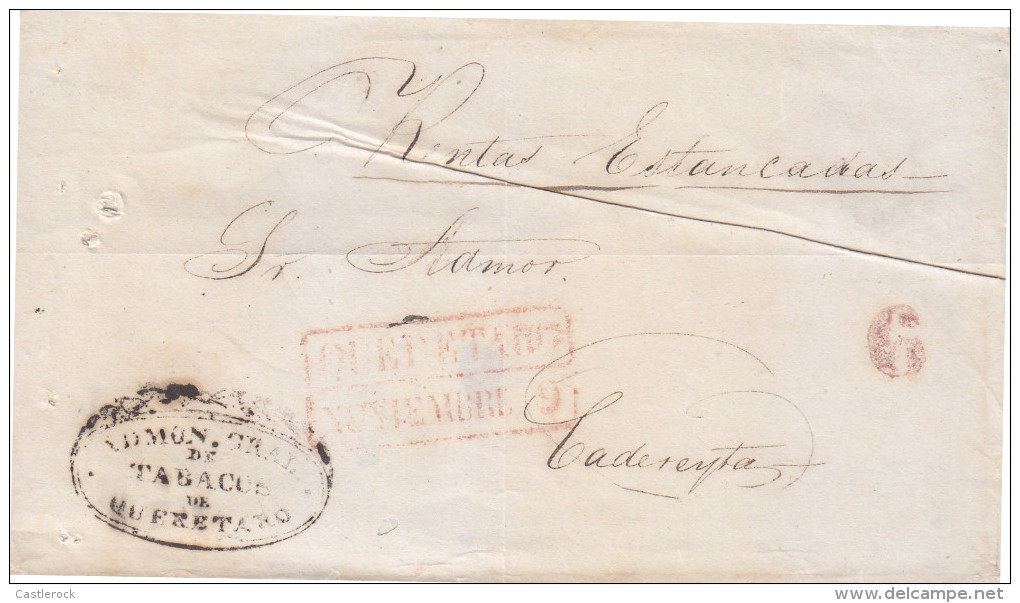 Rentas Estancadas
Sr. Admor.
QUERETARO
NOVIEMBRE 9
6
Cadereyta
ADMON. GRAL.
DE
TABACOS
DE
QUERETARO
Castlerock
delcampe.net